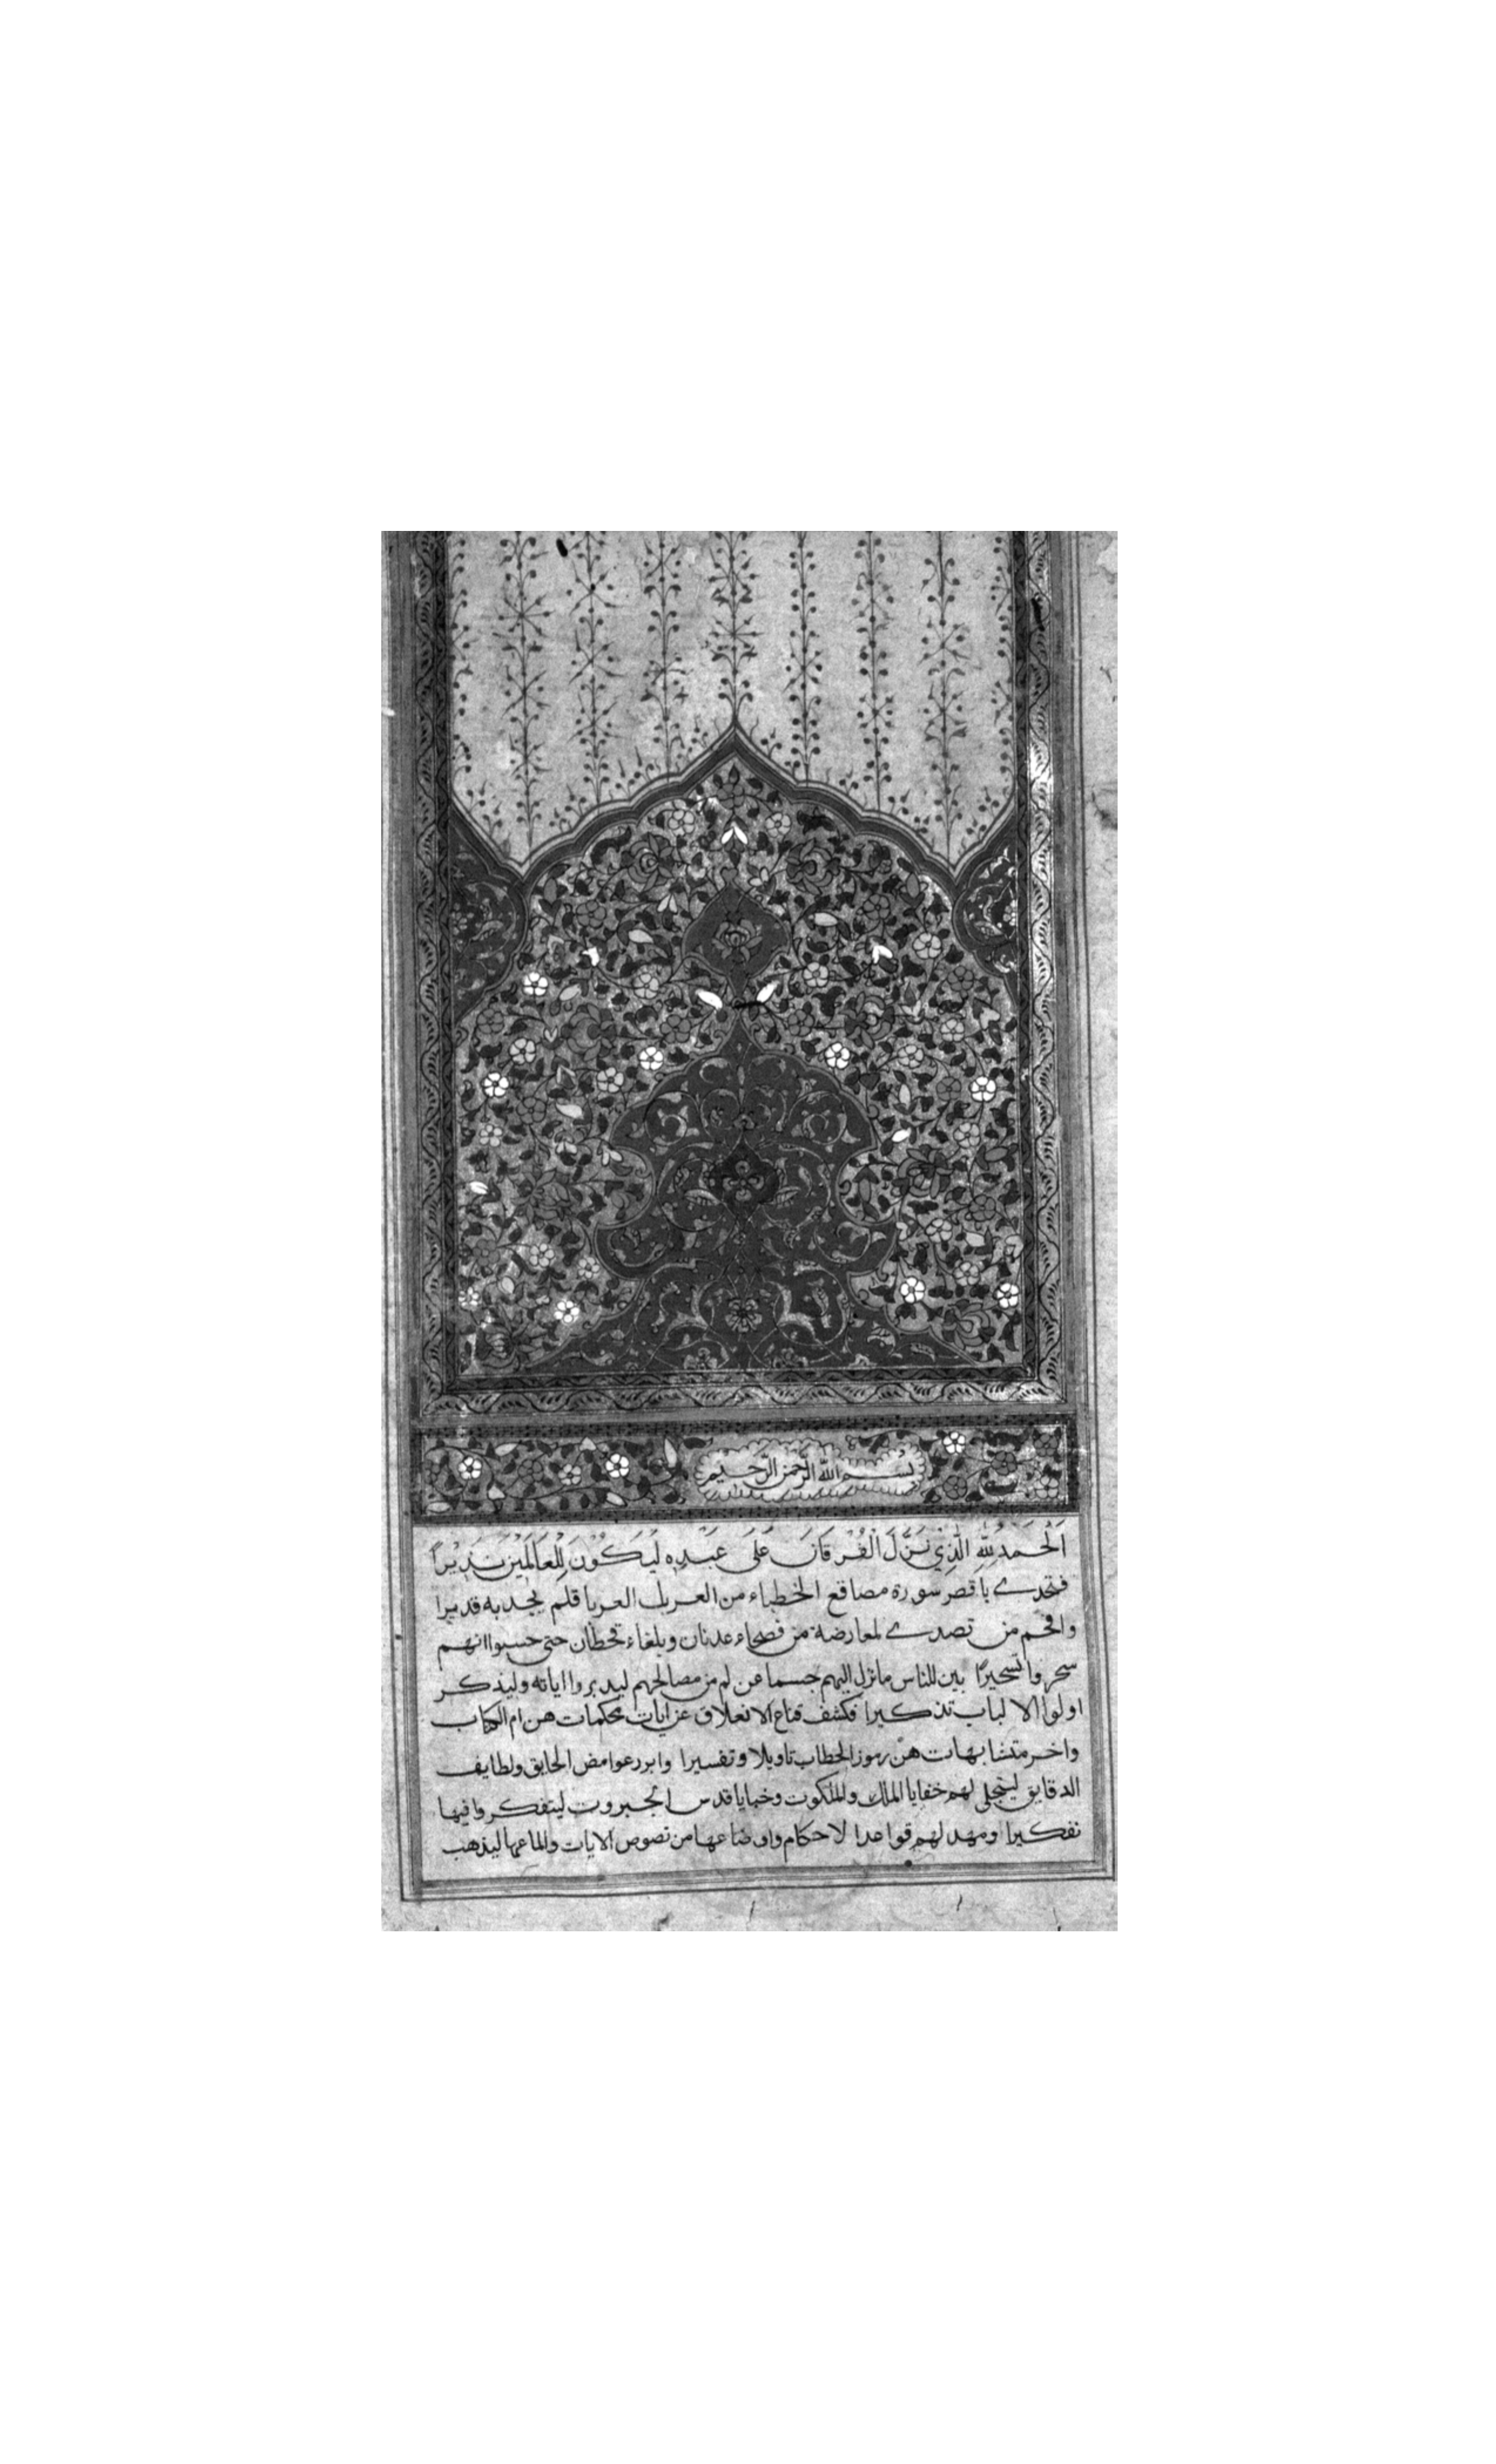 بسم الله الرحمن الرحيم
اَلْحَمْدُ لِلّٰهِ الَّذِي نَزَّلَ الْفُرْقَانَ عَلَى عَبْدِهِ لِيَكُوْنَ لِلْعَالَمِيْنَ نَذِيْراً
فتحدى باقصر سورة مصاقع الخطباء من العرب العربا فلم يجد به قديرا
وافحم من تصدى لمعارضته من فصحاء عدنان وبلغاء قحطان حتى حسبوا انهم
سحروا تسحيرًا بين للناس ما نزل اليهم حسما عن لهم من مصالحهم ليدبروا اياته وليذكر
اولوا الالباب تذكيرا فكشف قناع الانغلاق عن ايات محكمات هن ام الكتاب
واخر متشابهات هن رموز الخطاب تاويلا وتفسيرا وابرز غوامض الحايق ولطايف
الدقايق ليتجلى لهم خفايا الملك والملكوت وخبايا قدس الجبروت ليتفكروا فيها
تفكيرا ومهد لهم قواعد الاحكام واوضاعها من نصوص الايات والماعها ليذهب